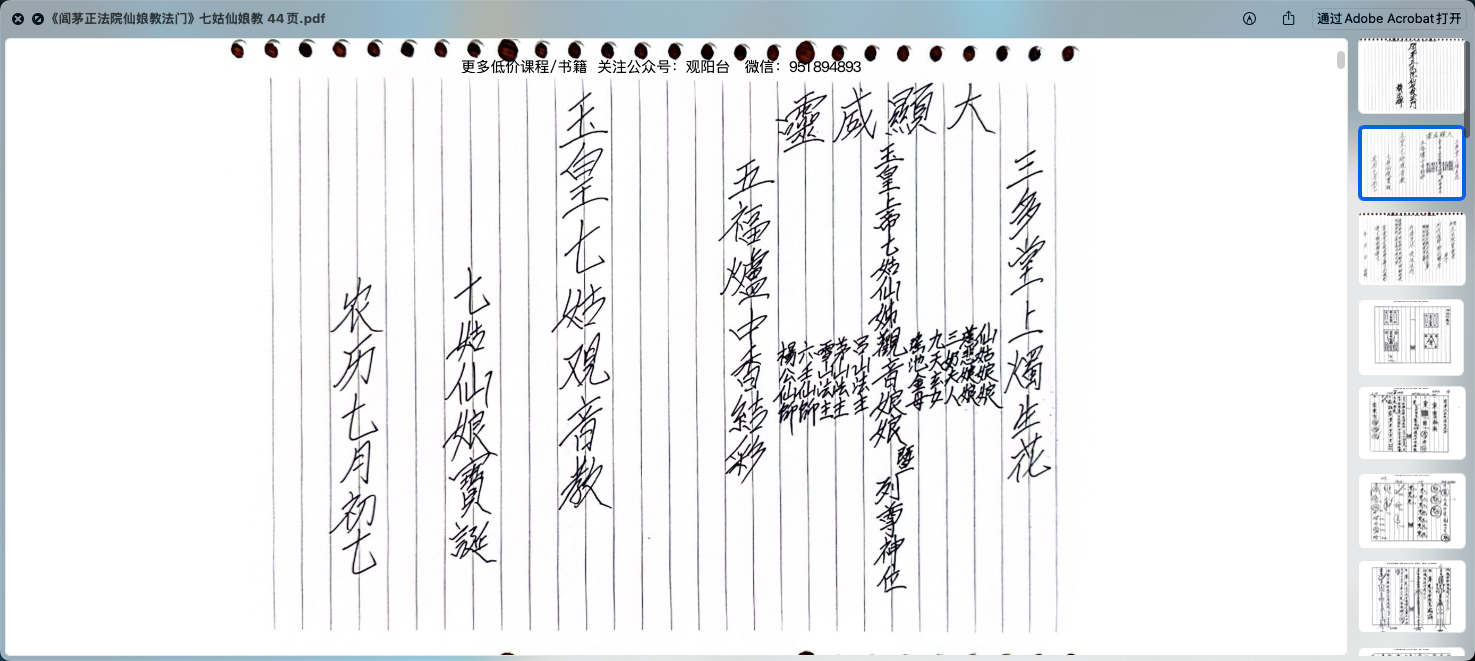 《闾茅正法院仙娘教法门》七姑仙娘教 44 页.pdf
通过 Adobe Acrobat 打开
更多低价课程/书籍 关注公众号：观阳台 微信：951894893
大顯威靈
三多堂上燭生花
仙姑娘娘
慈悲娘娘
三奶夫人
九天玄女
瑤池金母
玉皇上帝七姑仙姊觀音娘娘暨列尊神位
呂山法主
茅山法主
雪山法主
六壬仙師
楊公仙師
五福爐中香結彩
玉皇七姑观音教
七姑仙娘寶誕
农历七月初七